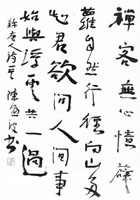 禪客無心憶薜
蘿自然行徑向山多
知君欲問人間事
始與浮雲共一過